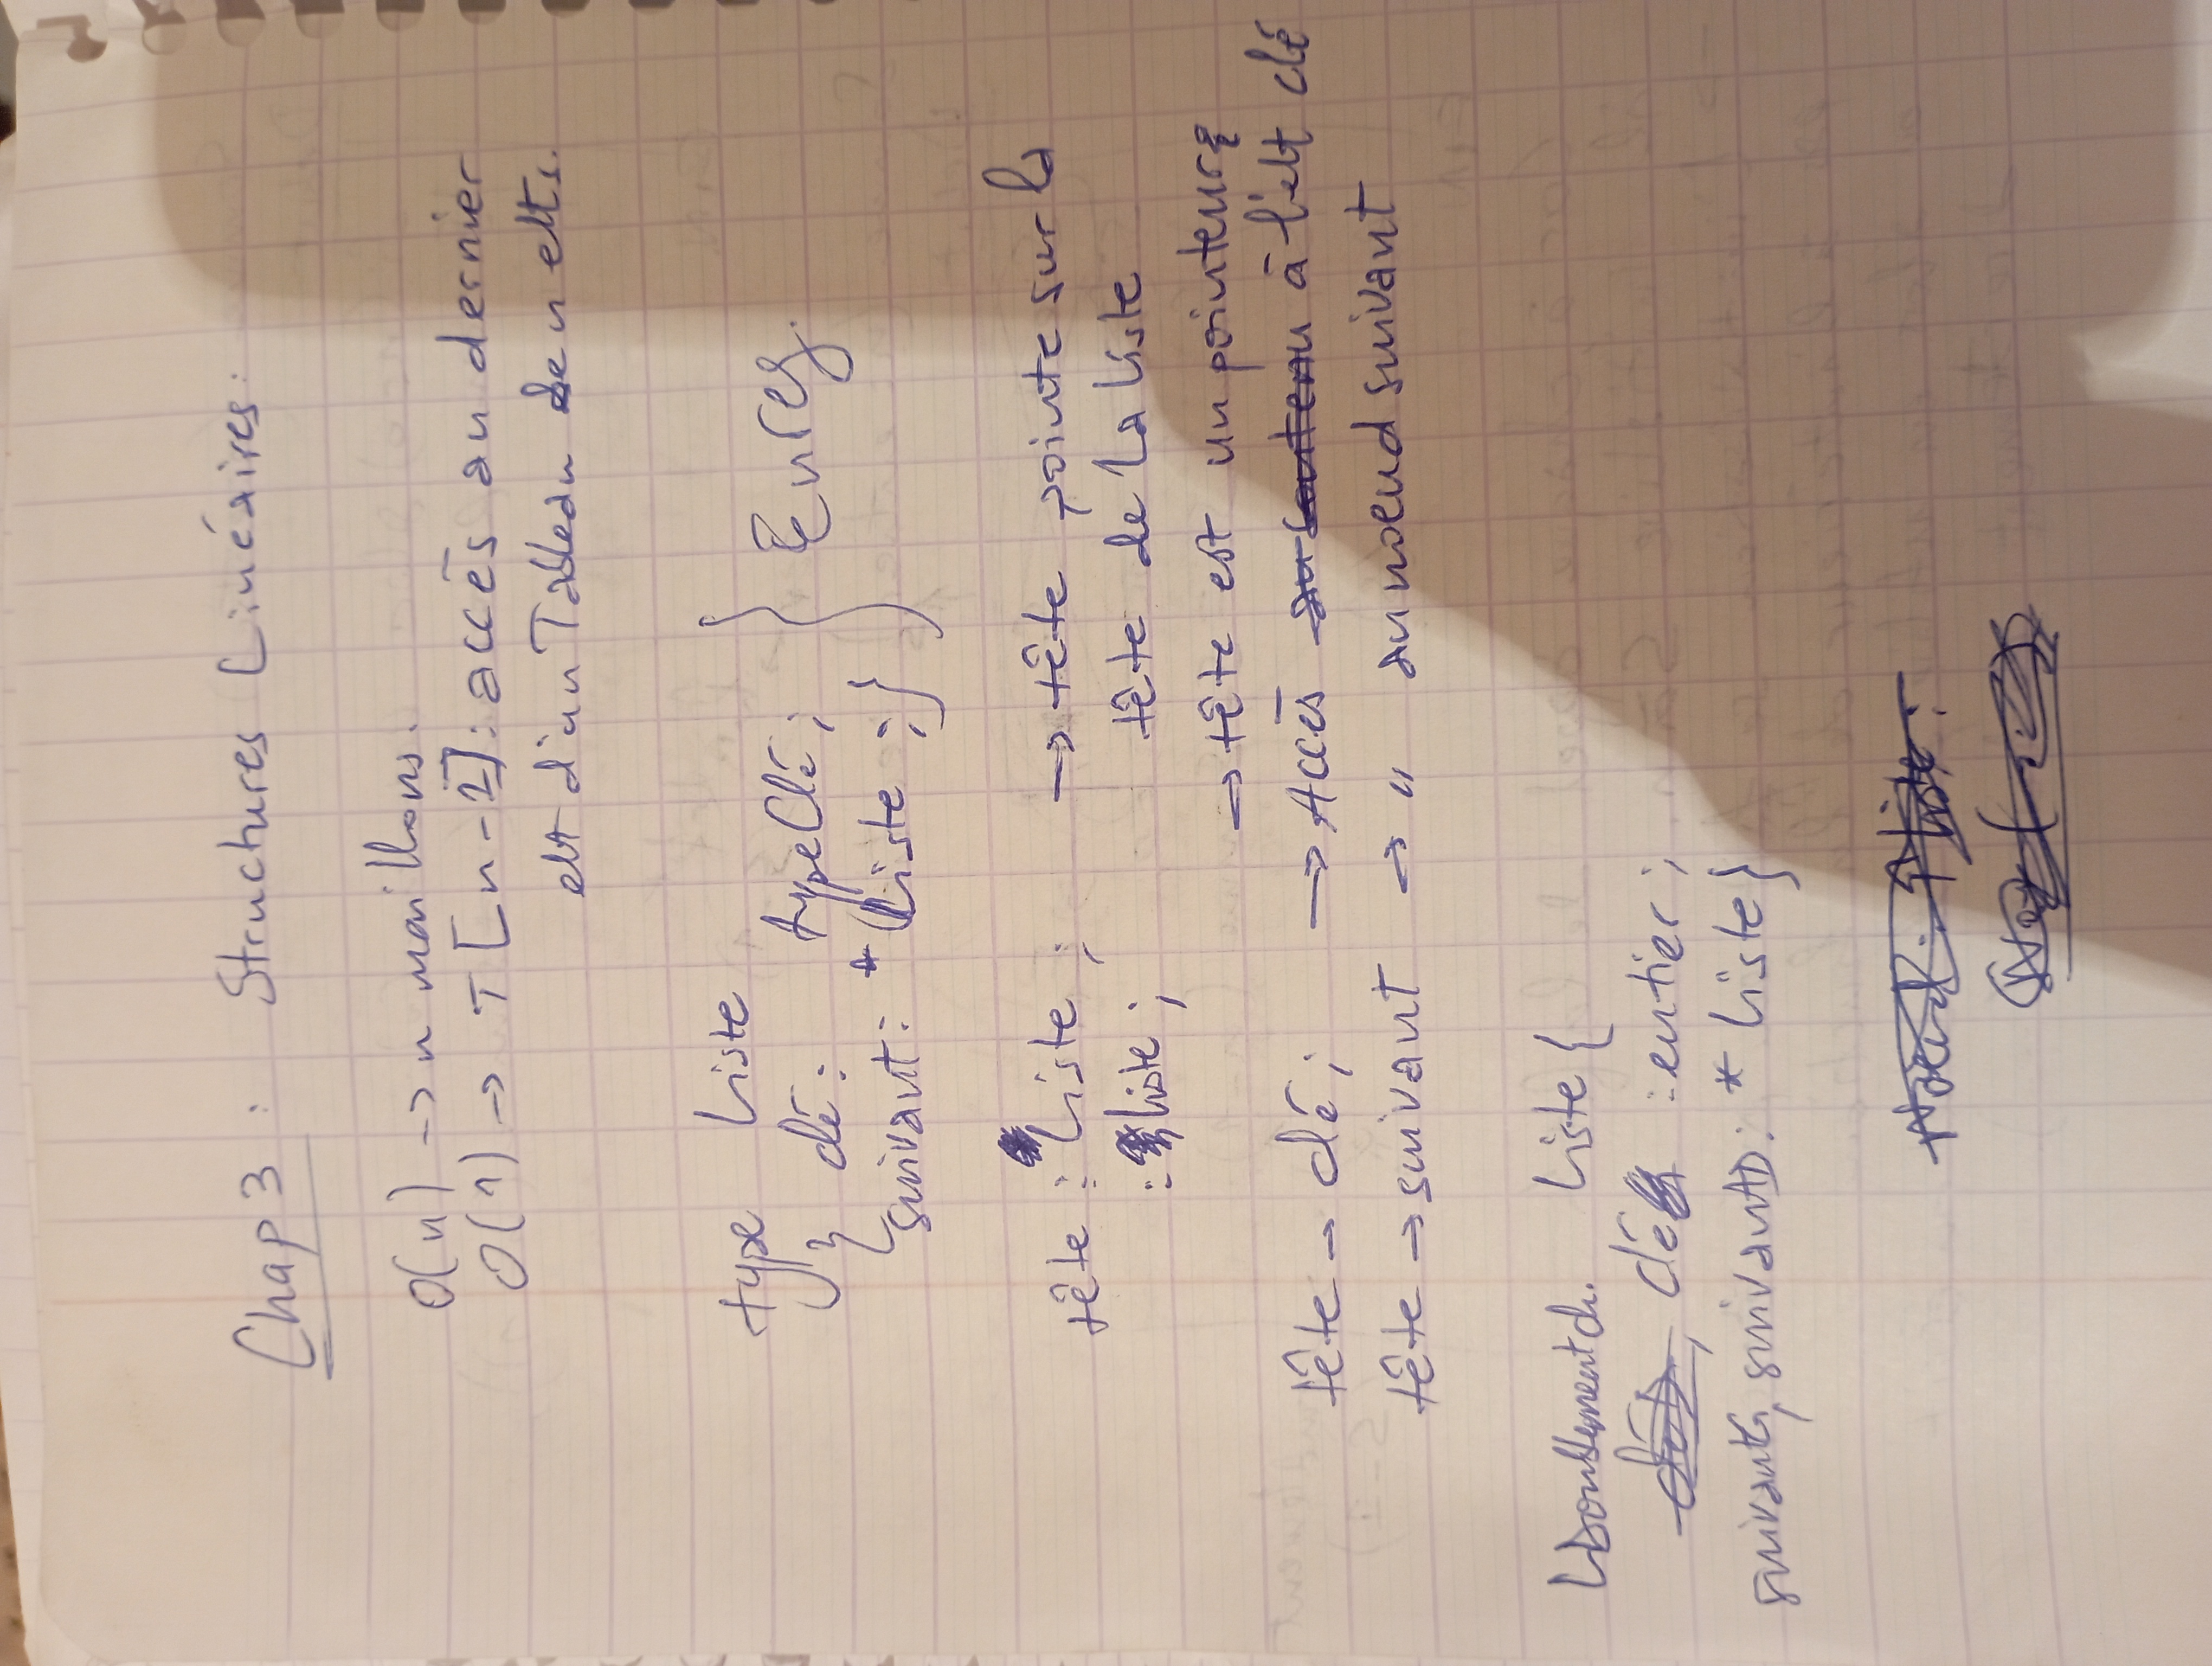 Chap 3 : Structures Linéaires :
O(n) -> n maillons.
O(1) -> T[n-1] : accès au dernier
elt d'un Tableau de n elts.
type Liste
{ clé : typeClé ; } Enreg.
suivant : * Liste ; }
tête : Liste ; -> tête pointe sur la
: liste ; tête de la liste
-> tête est un pointeur
tête -> clé ; -> Accès au contenu à l'elt clé
tête -> suivant -> " au noeud suivant
LDoublement ch. Liste {
cléD, clé : entier ;
suivantG, suivantD : * liste }
Noeud : ↑liste ;